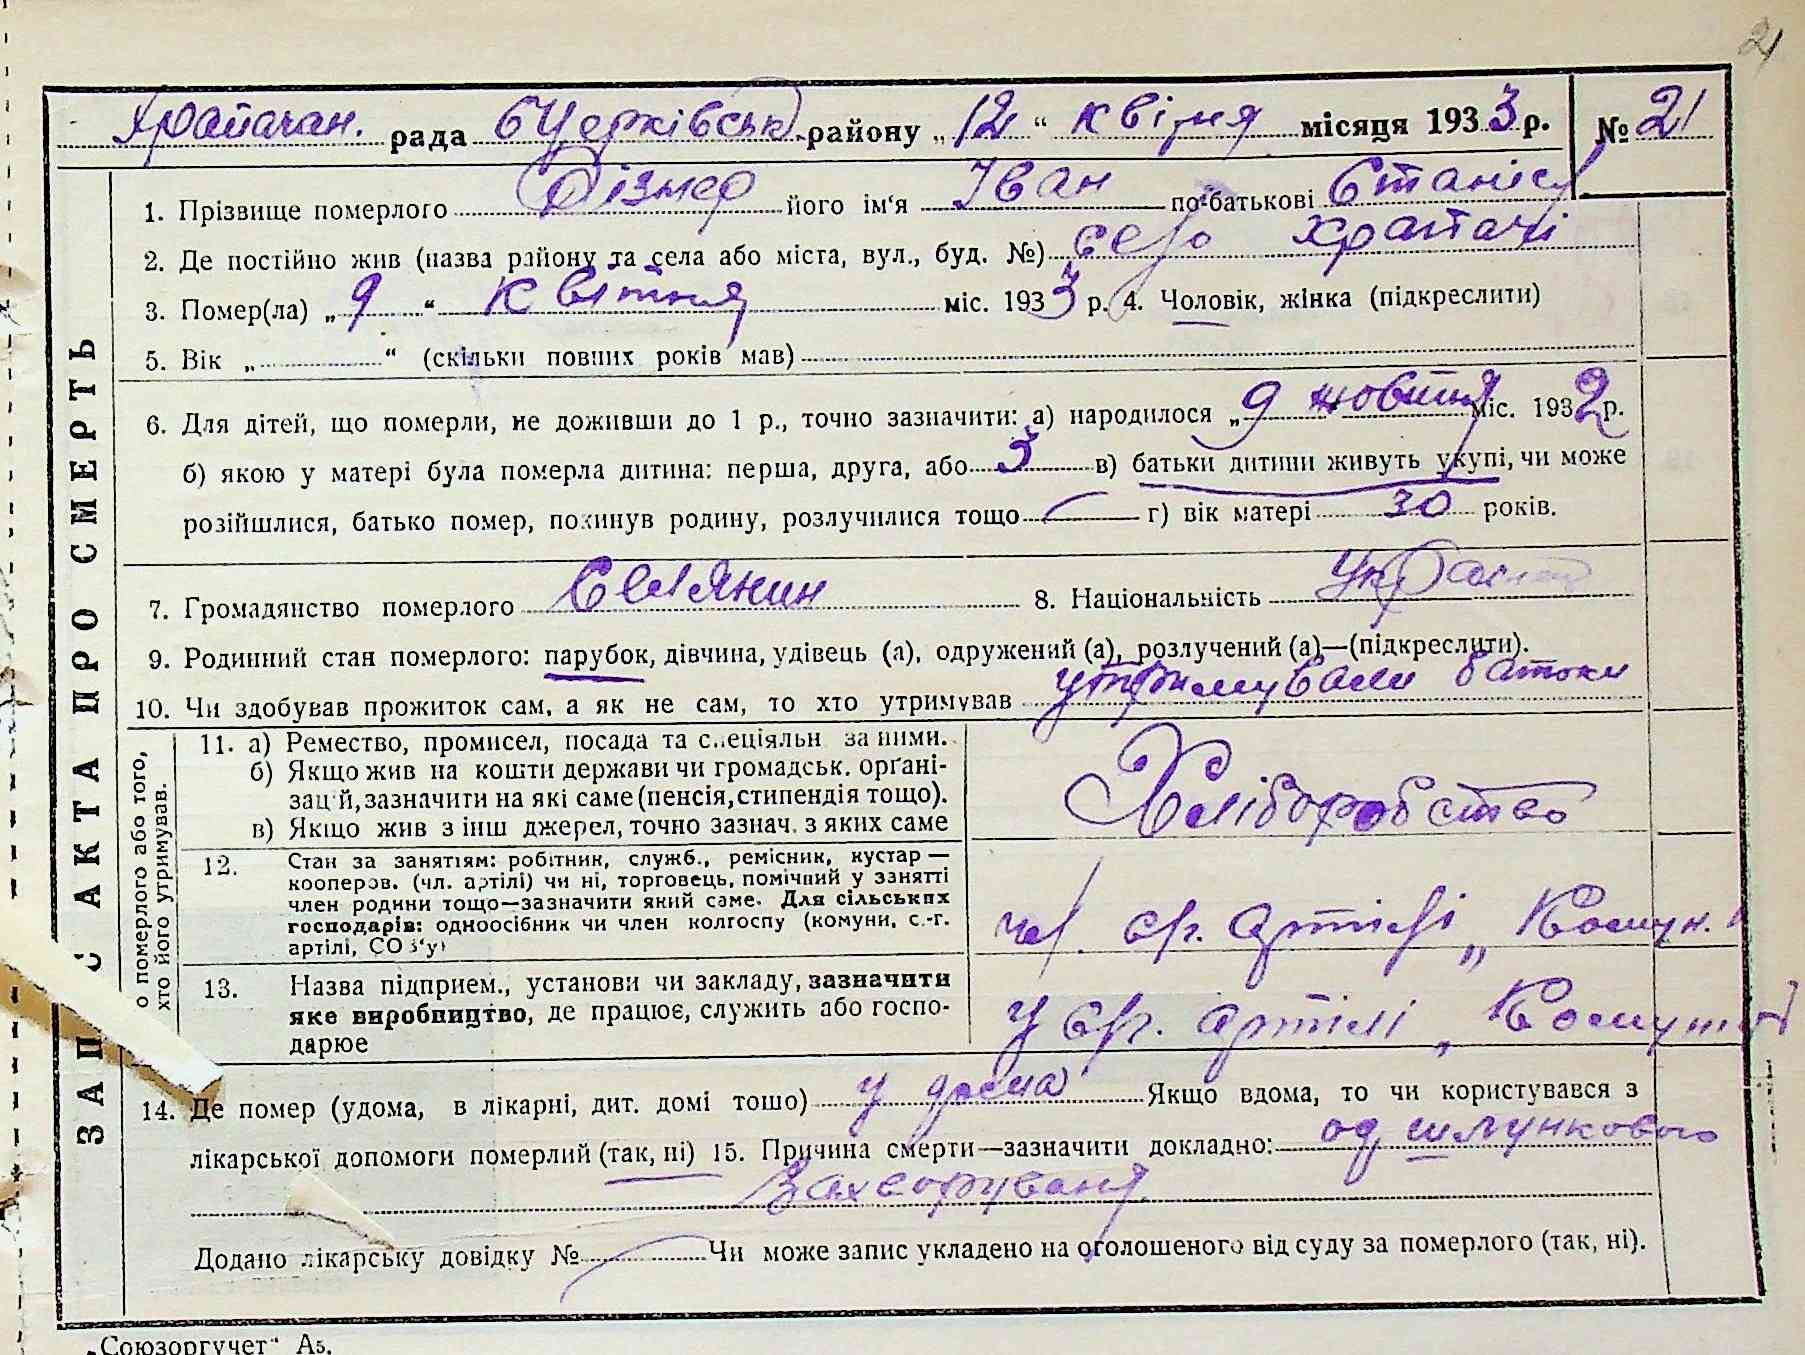 21
Храпачан. рада бЦерківськ. району „12“ квітня місяця 1933 р. № 21
ЗАПИС АКТА ПРО СМЕРТЬ
1. Прізвище померлого Дізмер його ім‘я Іван по-батькові Станісл
2. Де постійно жив (назва району та села або міста, вул., буд. №) село Храпачі
3. Помер(ла) „9“ квітня міс. 1933 р. 4. Чоловік, жінка (підкреслити)
5. Вік „ “ (скільки повних років мав)
6. Для дітей, що померли, не доживши до 1 р., точно зазначити: а) народилося „9 жовтня міс. 1932 р.
б) якою у матері була померла дитина: перша, друга, або 3 в) батьки дитини живуть укупі, чи може
розійшлися, батько помер, покинув родину, розлучилися тощо г) вік матері 30 років.
7. Громадянство померлого Селянин 8. Національність Україн
9. Родинний стан померлого: парубок, дівчина, удівець (а), одружений (а), розлучений (а)—(підкреслити).
10. Чи здобував прожиток сам, а як не сам, то хто утримував утримували батьки
о померлого або того, хто його утримував.
11. а) Ремество, промисел, посада та спеціяльн за ними.
б) Якщо жив на кошти держави чи громадськ. органі-
зацій, зазначити на які саме (пенсія, стипендія тощо).
в) Якщо жив з інш джерел, точно зазнач. з яких саме
Хліборобство
12. Стан за занятіям: робітник, служб., ремісник, кустар —
кооперов. (чл. артілі) чи ні, торговець, помічний у занятті
член родини тощо—зазначити який саме. Для сільських
господарів: одноосібник чи член колгоспу (комуни, с.-г.
артілі, СОЗ‘у)
чл. с/г. артілі „Комун.
13. Назва підприєм., установи чи закладу, зазначити
яке виробництво, де працює, служить або госпо-
дарює
у с/г. артілі „Комунар
14. Де помер (удома, в лікарні, дит. домі тошо) у дома Якщо вдома, то чи користувався з
лікарської допомоги померлий (так, ні) 15. Причина смерти—зазначити докладно: од шлункового
захворування
Додано лікарську довідку № Чи може запис укладено на оголошеного від суду за померлого (так, ні).
„Союзоргучет“ А5.